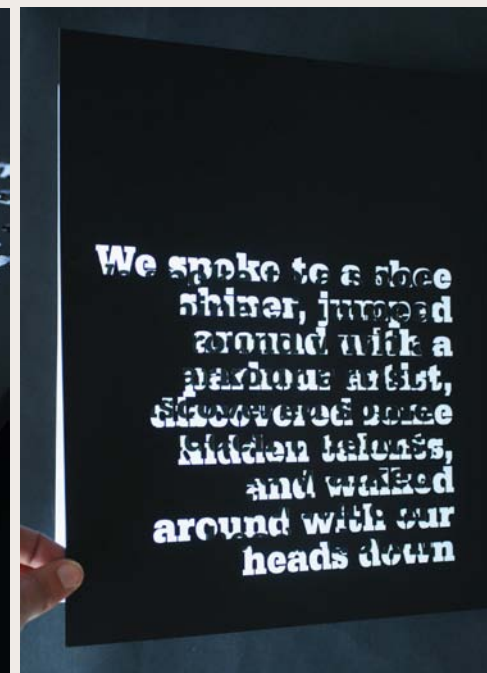 We spoke to a shoe
shiner, jumped
around with a
parkour artist,
discovered some
hidden talents,
and walked
around with our
heads down